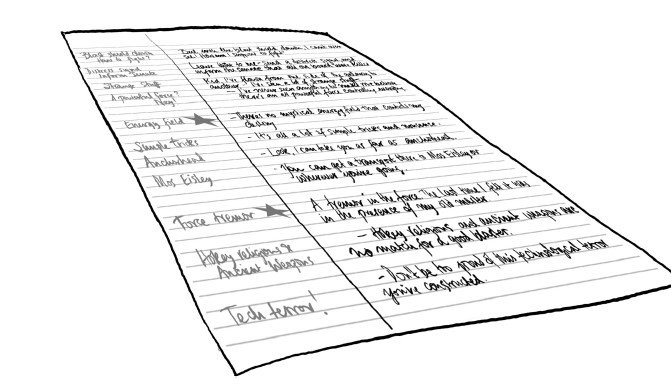 Blast shield down
How to fight?
Distress signal
Inform Senate
Strange Stuff
A powerful force?
Energy field
Simple tricks
Anchorhead
Mos Eisley
Force tremor
Hokey religions &
Ancient Weapons
Tech terror!
But with the blast shield down, I can't even
see! How am I supposed to fight?
Leave that to me. Send a distress signal and
inform the senate that all on board were killed
Kid, I've flown from one side of the galaxy to
another. I've seen a lot of strange stuff
I've never seen anything to make me believe
there's an all powerful force controlling everything
- There's no mystical energy field that controls my
destiny
- It's all a lot of simple tricks and nonsense.
- Look, I can take you as far as anchorhead.
- You can get a transport there to Mos Eisley or
wherever you're going.
A tremor in the force. The last time I felt it was
in the presence of my old master
- Hokey religions and ancient weapons are
no match for a good blaster
- Don't be to proud of this technological terror
you've constructed.